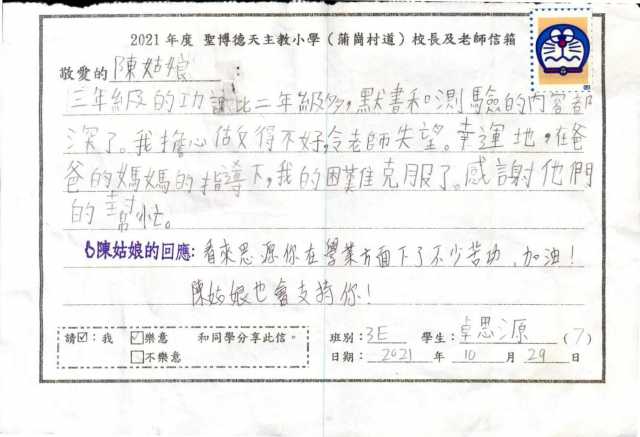 2021 年度 聖博德天主教小學（蒲崗村道）校長及老師信箱
敬愛的 陳姑娘 ：
三年級的功課比二年級多，默書和測驗的內容都
深了。我擔心做又得不好，令老師失望。幸運地，在爸
爸的媽媽的指導下，我的困難克服了。感謝他們
的幫忙。
陳姑娘的回應: 看來思源你在學業方面下了不少苦功，加油！
陳姑娘也會支持你！
請☑：我 ☑樂意 和同學分享此信。
□不樂意
班別：3E 學生：卓思源 （7）
日期：2021 年 10 月 29 日